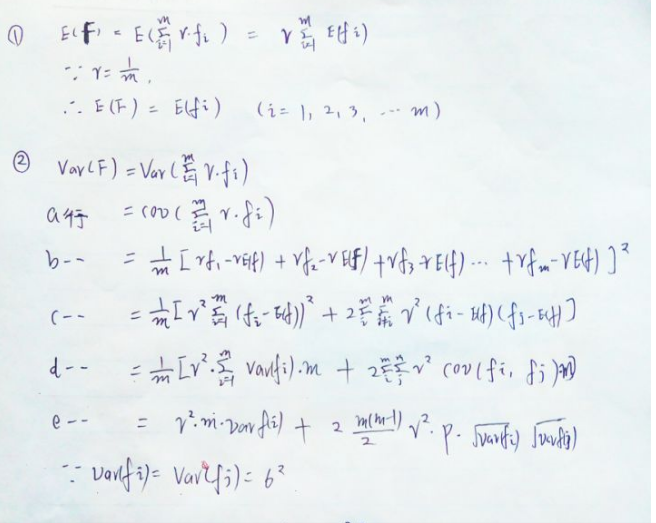 ① E(F) = E(∑_{i=1}^{m} γ·f_i) = γ ∑_{i=1}^{m} E(f_i)
∵ γ = 1/m,
∴ E(F) = E(f_i) (i = 1, 2, 3, ... m)
② Var(F) = Var(∑_{i=1}^{m} γ·f_i)
a行 = cov(∑_{i=1}^{m} γ·f_i)
b-- = 1/m [γf_1-γE(f) + γf_2-γE(f) + γf_3-γE(f) ... + γf_m-γE(f)]²
c-- = 1/m [γ² ∑_{i=1}^{m} (f_i-E(f))² + 2 ∑_{i}^{m} ∑_{i≠j}^{m} γ² (f_i-E(f))(f_j-E(f))]
d-- = 1/m [γ²·∑_{i=1}^{m} Var(f_i)·m + 2∑_{i}∑_{j} γ² cov(f_i, f_j) m]
e-- = γ²·m·var f(i) + 2 m(m-1)/2 γ²·p·√var(f_i) √var(f_j)
∵ var(f_i) = Var(f_j) = 6²